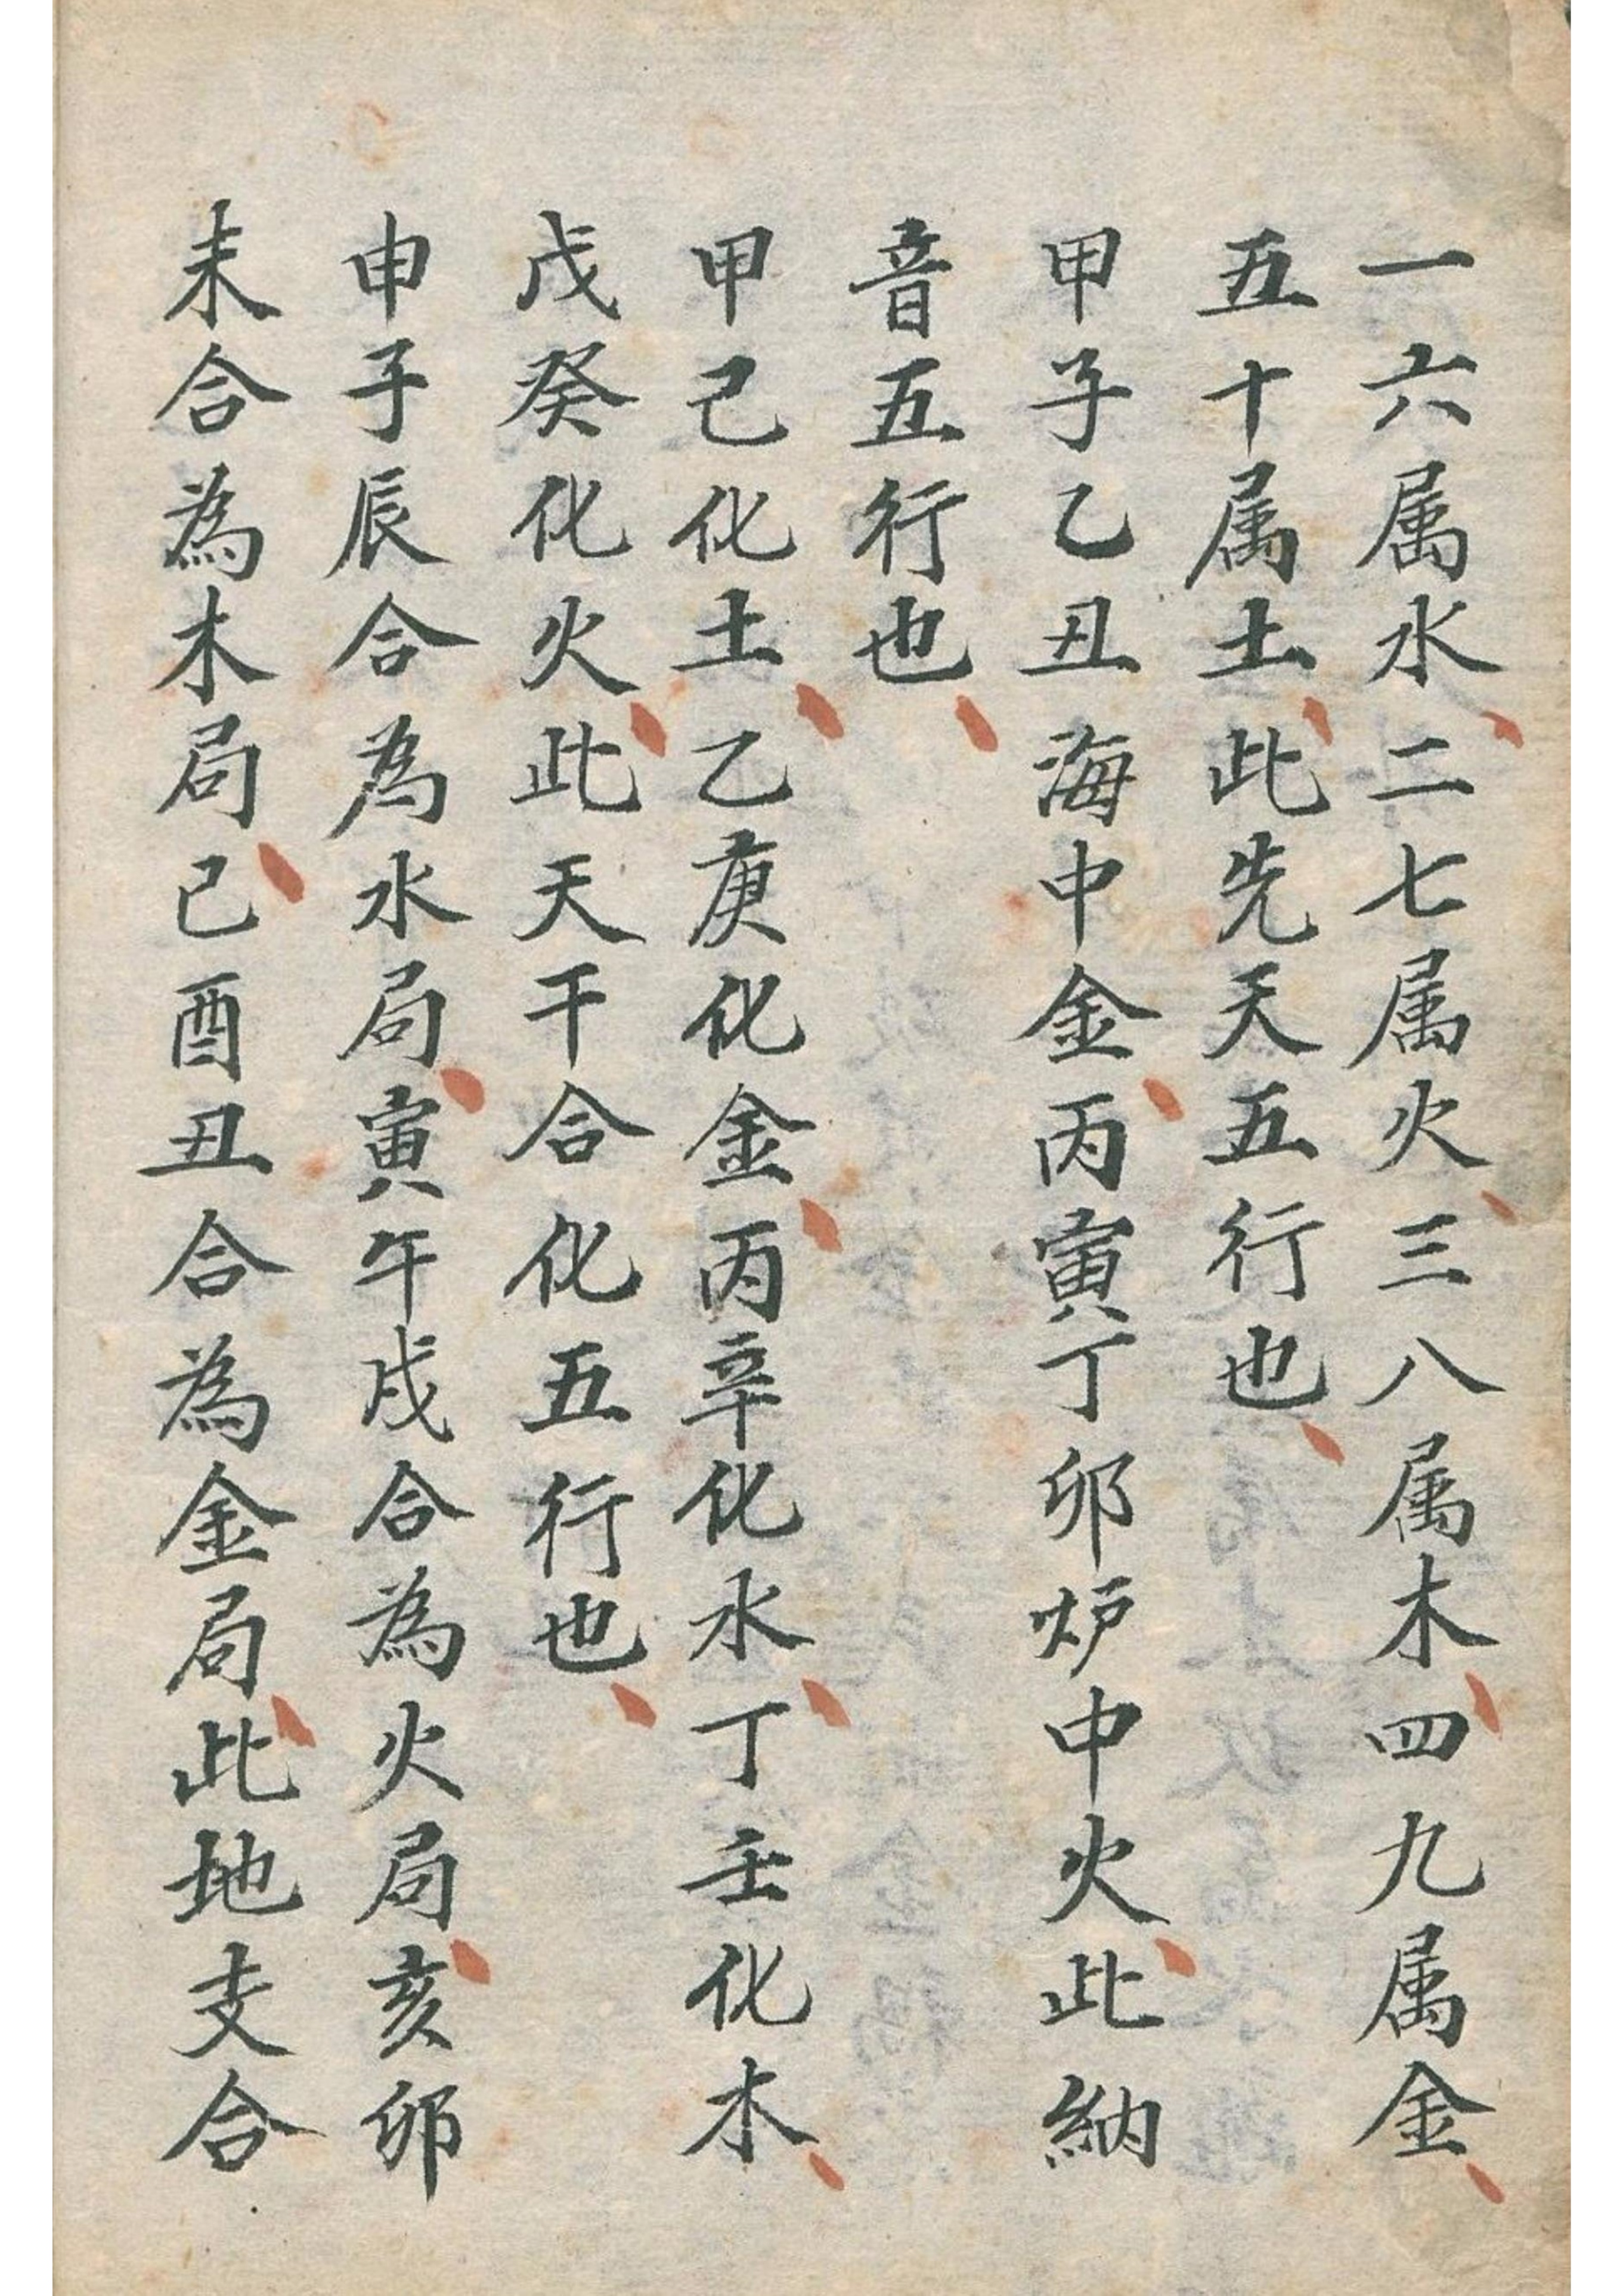 一六属水二七属火三八属木四九属金
五十属土此先天五行也
甲子乙丑海中金丙寅丁卯炉中火此納
音五行也
甲己化土乙庚化金丙辛化水丁壬化木
戊癸化火此天干合化五行也
申子辰合為水局寅午戌合為火局亥卯
未合為木局巳酉丑合為金局此地支合